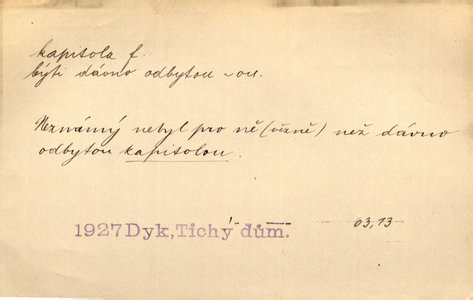 kapitola f.
býti dávno odbytou ~ou.
Neznámý nebyl pro ně (vězně) než dávno
odbytou kapitolou.
1927 Dyk, Tichý dům. 63,13